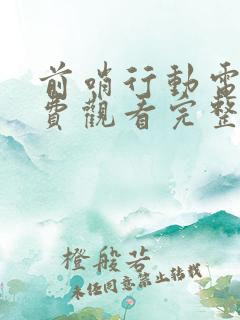 前哨行動電
費觀看完整
橙般若
未經同意禁止轉載